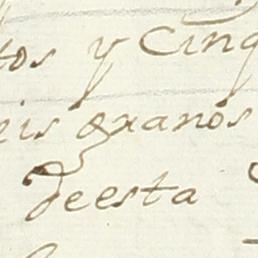 tos y Cinq
eis granos
deesta